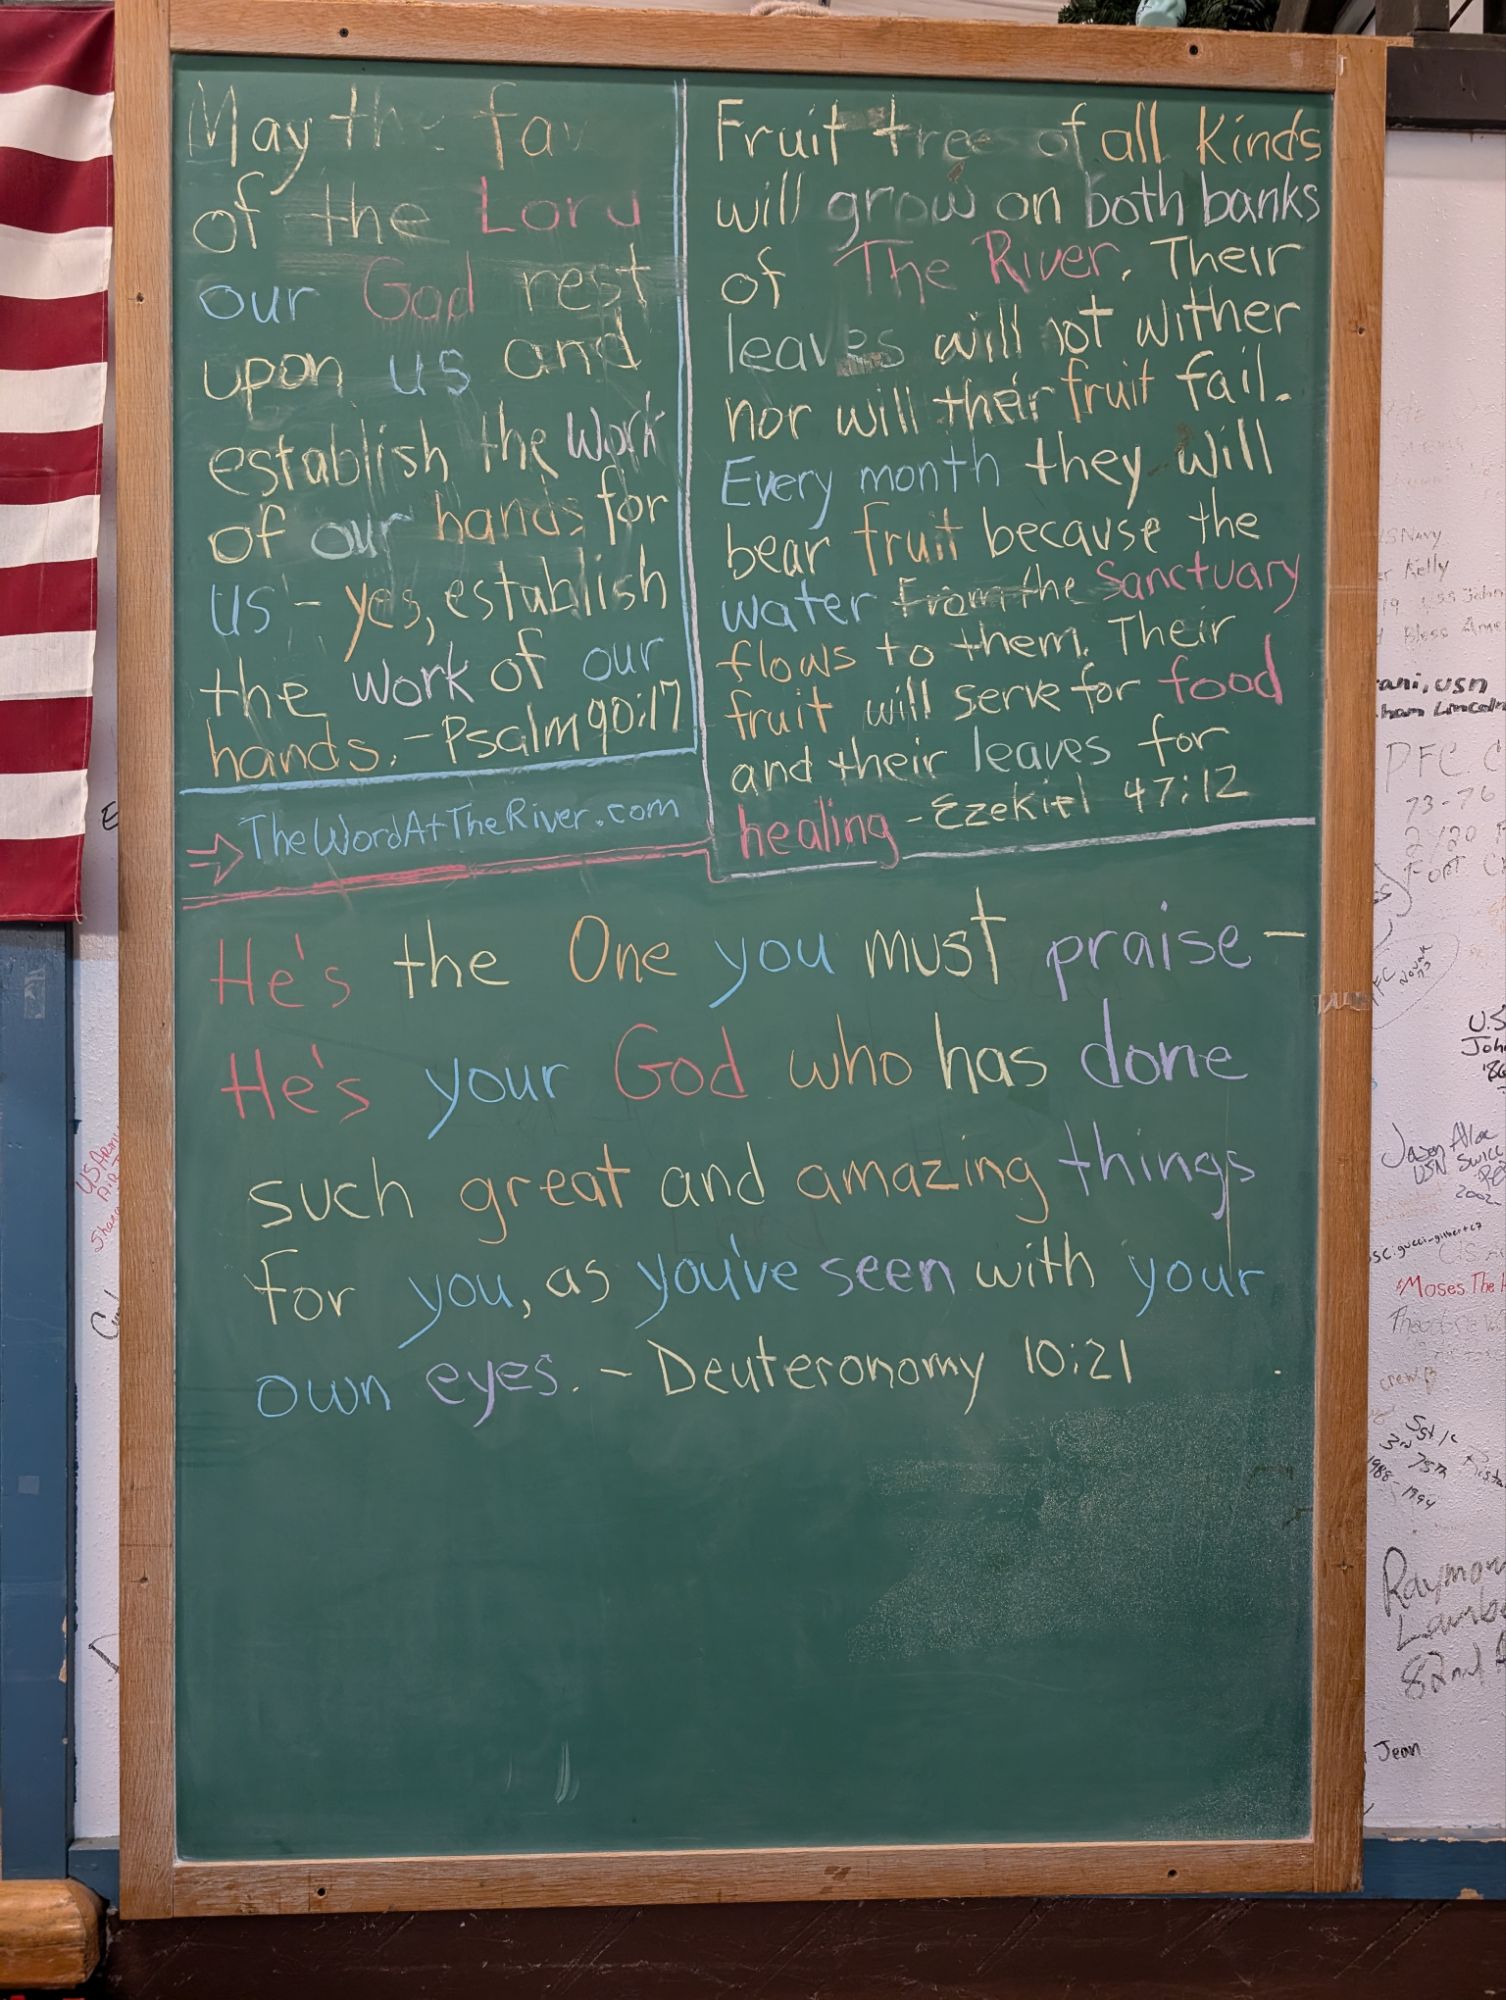 May the fav
of the Lord
our God rest
upon us and
establish the work
of our hands for
us - yes, establish
the work of our
hands. - Psalm 90:17
TheWordAtTheRiver.com
Fruit trees of all kinds
will grow on both banks
of The River. Their
leaves will not wither
nor will their fruit fail.
Every month they will
bear fruit because the
water from the Sanctuary
flows to them. Their
fruit will serve for food
and their leaves for
healing - Ezekiel 47:12
He's the One you must praise -
He's your God who has done
such great and amazing things
for you, as you've seen with your
own eyes. - Deuteronomy 10:21
US Navy
Kelly
19 USS John
Bless Ame
rani, USN
ham Lincoln
PFC C
73-76
2/20
Fort C
PFC
Novak
73
U.S
John
'86
Jason
USN SWCC
2002
"Moses The
crew
3rd 75th
1988-1994
Raymon
Lambe
82nd A
Jean
US Army